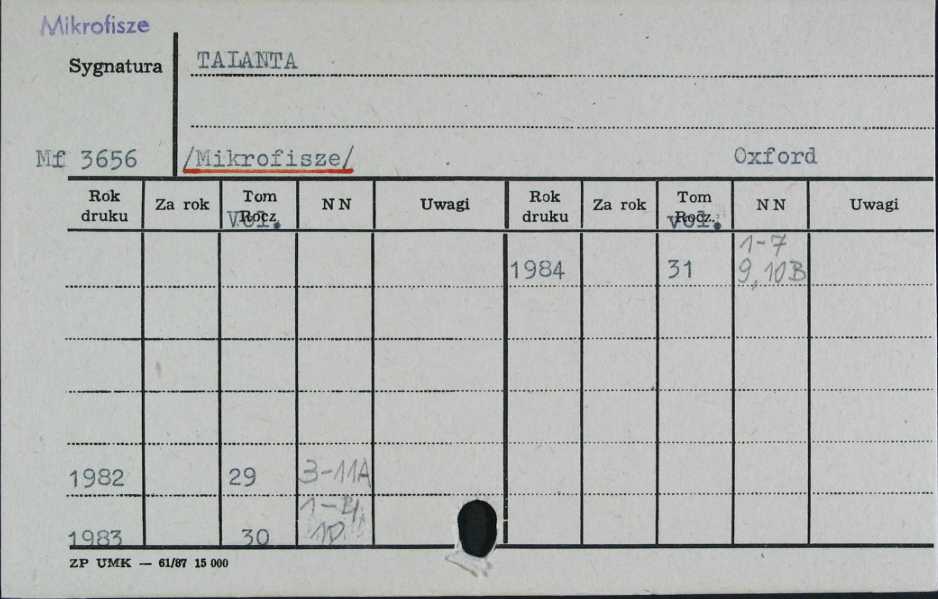 Mikrofisze
Sygnatura TALANTA
Mf 3656 /Mikrofisze/ Oxford
Rok druku Za rok Tom Rocz. Vol. NN Uwagi Rok druku Za rok Tom Rocz. vol. NN Uwagi
1984 31 1-7
9,10B
1982 29 3-11A
1983 30
ZP UMK — 61/87 15 000